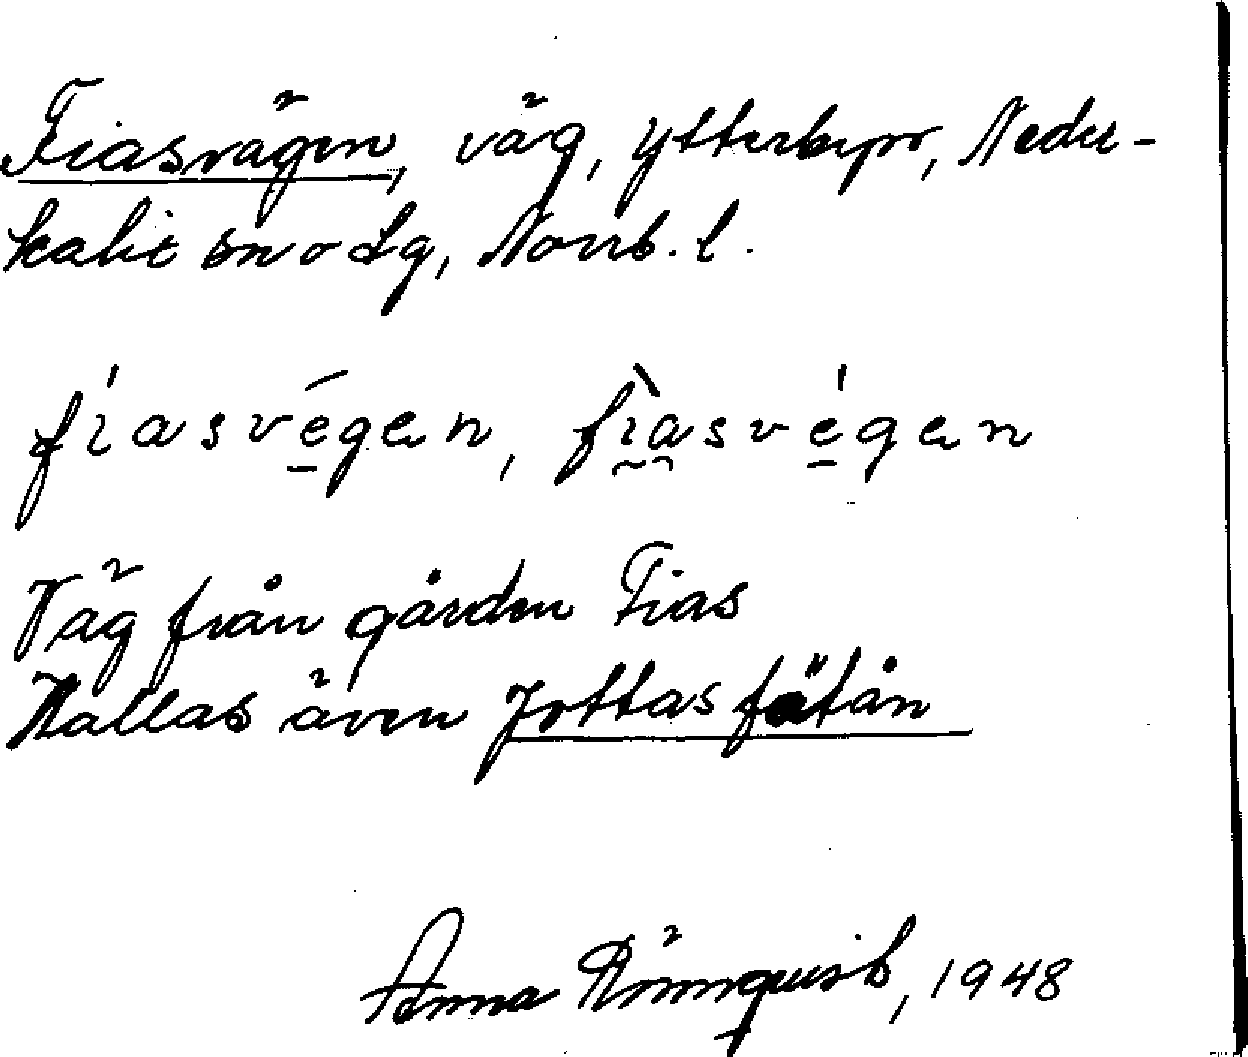 Fiasvägen, väg, Ytterbyn, Neder-
kalix sn o Lg, Norrb. l.
fíasvégen, fìasvégen
Väg från gården Fias
Kallas även Jottasfätån
Anna Rönnquist, 1948